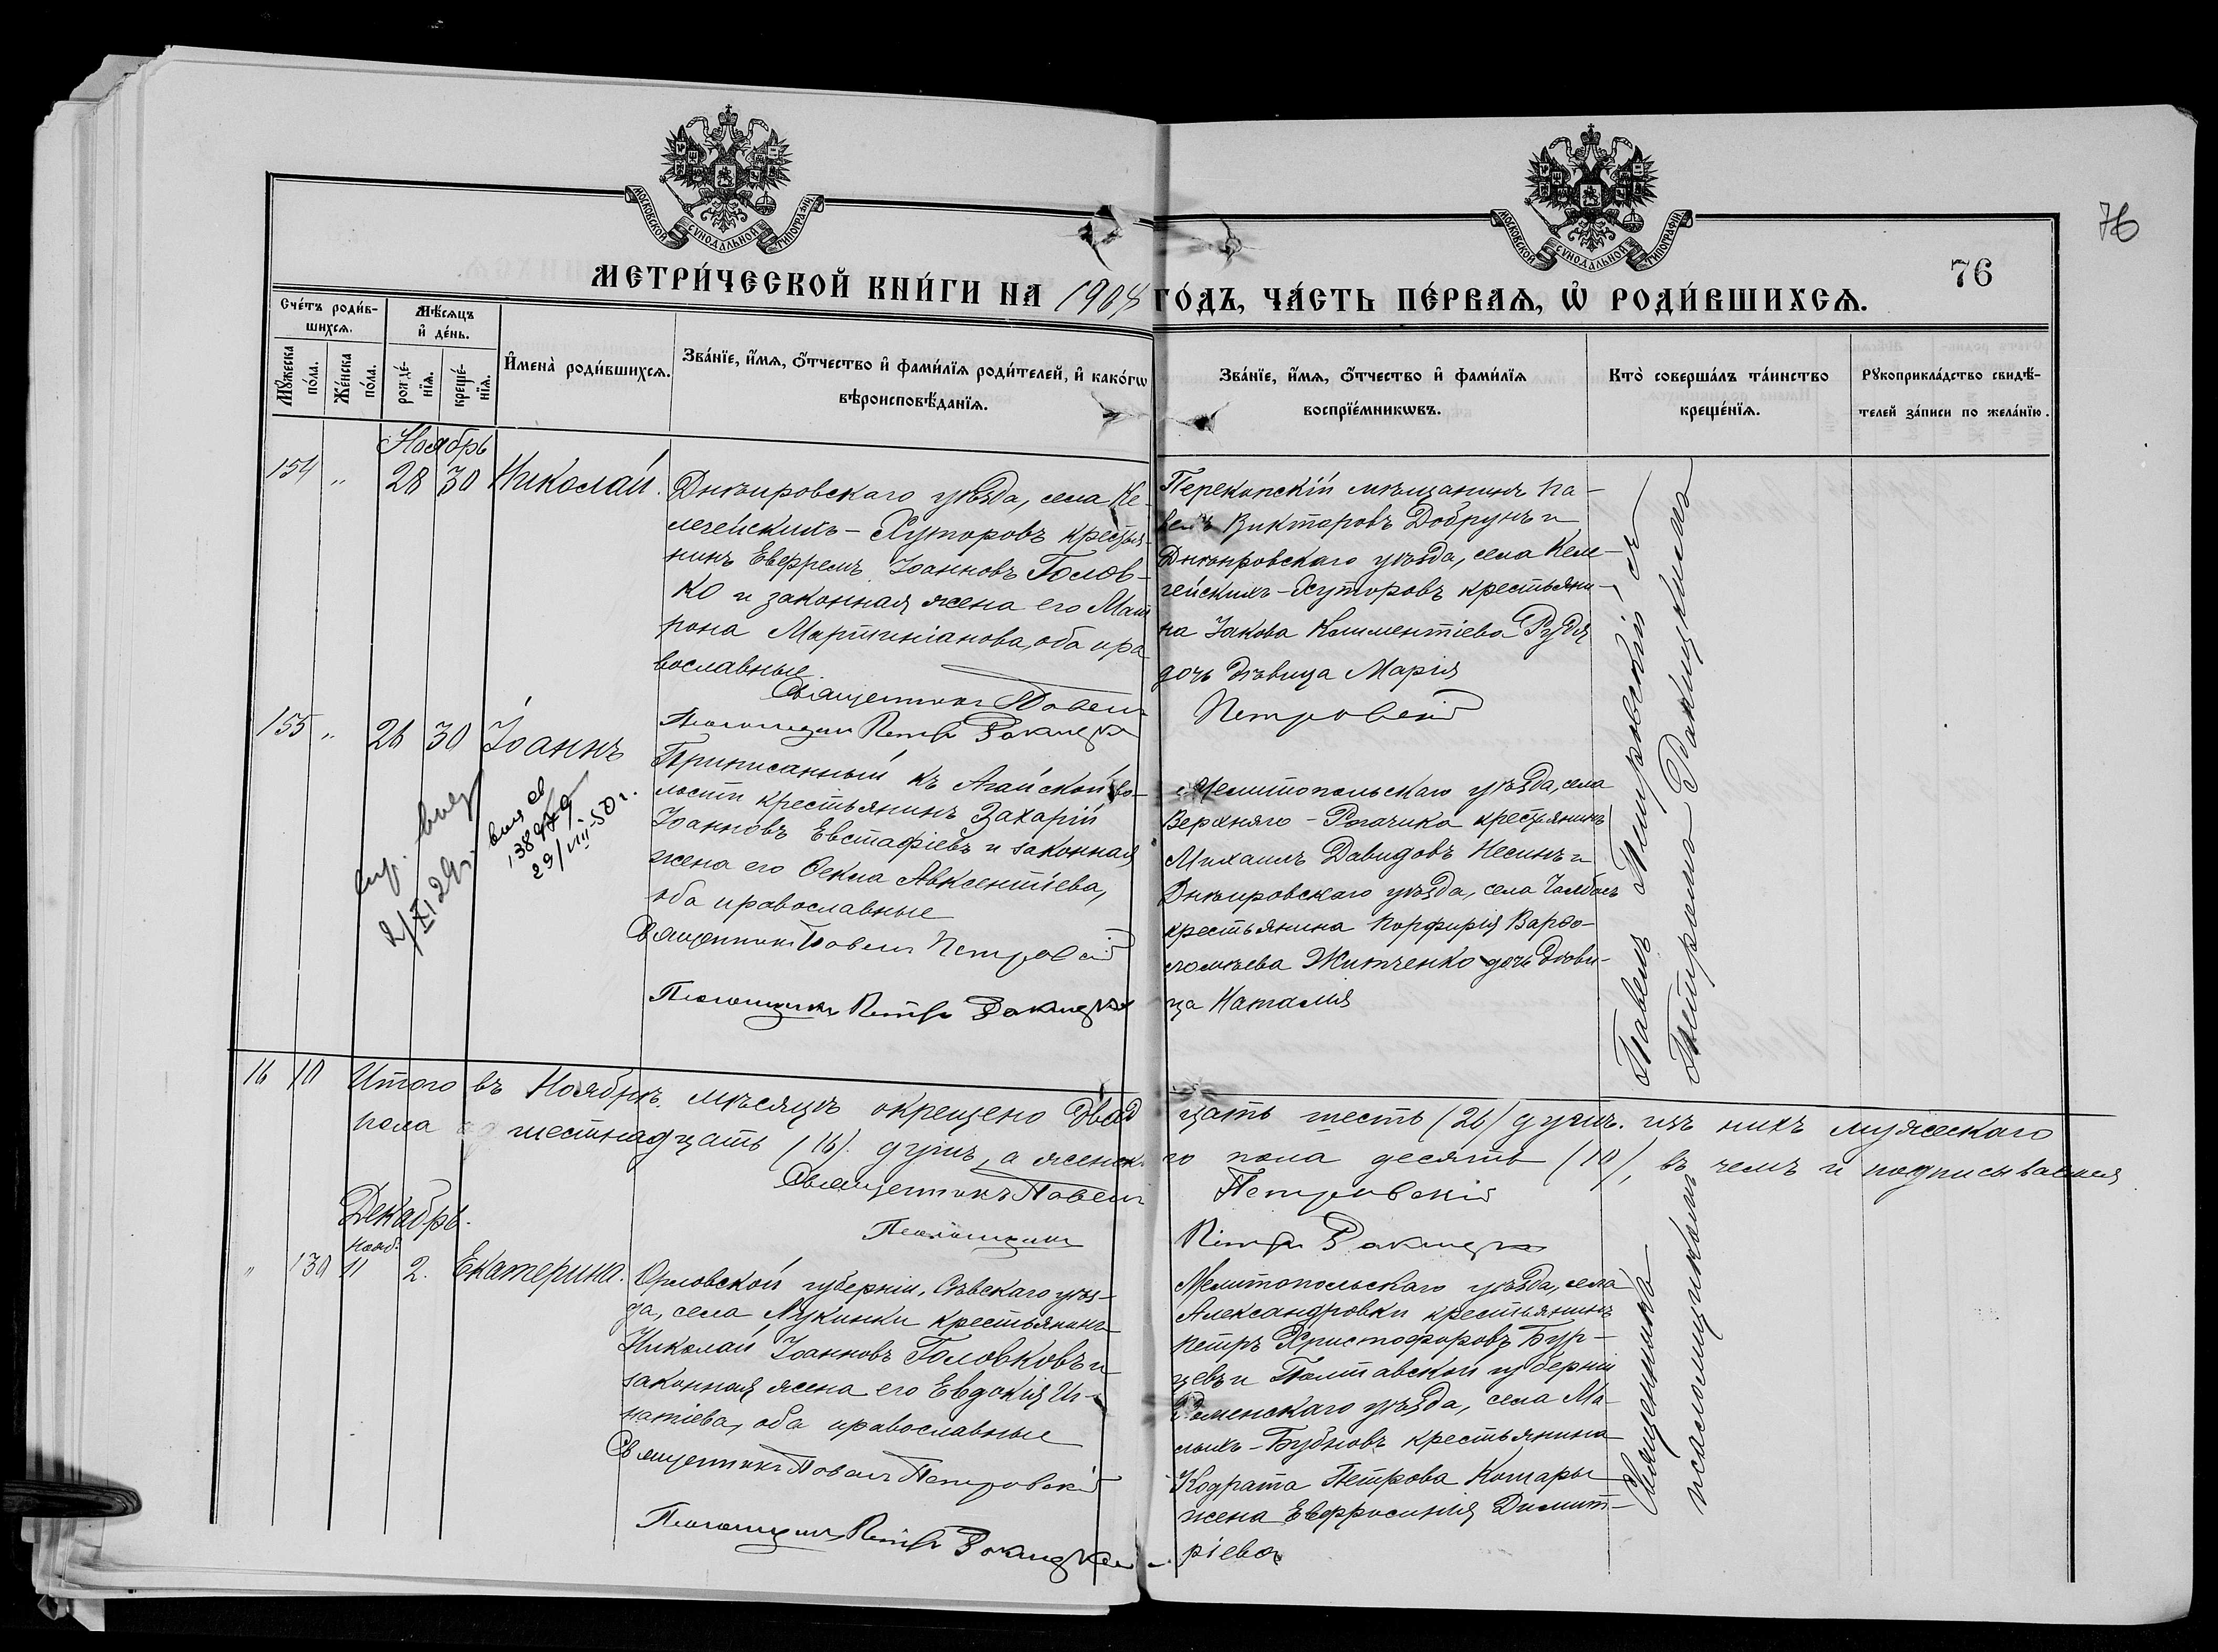 МОСКОВСКОЙ СѴНОДАЛЬНОЙ ТИПОГРАФІИ
МОСКОВСКОЙ СѴНОДАЛЬНОЙ ТИПОГРАФІИ
76
76
МЕТРИ́ЧЕСКОЙ КНИ́ГИ НА 1904 ГО́ДЪ, ЧА́СТЬ ПЕ́РВАѦ, Ѡ҆ РОДИ́ВШИХСѦ.
Сче́тъ роди́в-
шихсѧ.
Мѣ́сѧцъ
и҆ де́нь.
И҆мена̀ роди́вшихсѧ.
Зва́нїе, и҆́мѧ, ѻ҆́тчество и҆ фами́лїѧ роди́телей, и҆ како́гѡ
вѣроисповѣ́данїѧ.
Зва́нїе, и҆́мѧ, ѻ҆́тчество и҆ фами́лїѧ
воспрїе́мникѡвъ.
Кто̀ соверша́лъ та́инство
креще́нїѧ.
Рꙋкоприкла́дство свидѣ́-
телей за́писи по жела́нїю.
Мꙋ́жеска
по́ла.
Же́нска
по́ла.
рожде́-
нїѧ.
креще́-
нїѧ.
Ноябрь
154 " 28 30 Николай.
Днѣпровскаго уѣзда, села Ке-
легейскихъ-Хуторовъ крестья-
нинъ Евфремъ Іоанновъ Голов-
ко и законная жена его Мат
рона Мартиніанова, оба пра
вославные
Священникъ Павелъ Петровскій
Псаломщикъ Петръ Ракицкій
Перекопскій мѣщанинъ Па-
велъ Викторовъ Добрунъ и
Днѣпровскаго уѣзда, села Келе-
гейскихъ-Хуторовъ крестьяни-
на Іакова Климентіева Рудя
дочь дѣвица Марія
155 " 26 30 Іоаннъ
Приписанный къ Агайской во-
лости крестьянинъ Захарій
Іоанновъ Евстафіевъ и законная
жена его Ѳекла Авксентіева,
оба православные
Священникъ Павелъ Петровскій
Псаломщикъ Петръ Ракицкій
Мелитопольскаго уѣзда, села
Верхняго-Рогачика крестьянинъ
Михаилъ Давидовъ Несинъ и
Днѣпровскаго уѣзда, села Чалбасъ
крестьянина Порфирія Варѳо-
ломѣева Житченко дочь дѣви-
ца Наталія
2/XI 29г.
29/VIII-50 г.
16 10 Итого въ Ноябрѣ мѣсяцѣ окрещено двад цать шесть (26) душъ. изъ нихъ мужескаго
пола шестнадцать (16) душъ, а женск го пола десять (10), въ чемъ и подписываемся
Священникъ Павелъ Петровскій
Псаломщикъ Петръ Ракицкій
Декабрь.
Нояб.
" 130 11 2. Екатерина.
Орловской губерніи, Сѣвскаго уѣз-
да, села Лукинки крестьянинъ
Николай Іоанновъ Головковъ и
законная жена его Евдокія Иг-
натіева, оба православные
Священникъ Павелъ Петровскій
Псаломщикъ Петръ Ракицкій
Мелитопольскаго уѣзда, села
Александровки крестьянинъ
Петръ Христофоровъ Бур-
цевъ и Полтавской губерніи
Роменскаго уѣзда, села Ма-
лыхъ-Бубновъ крестьянина
Кодрата Петрова Кошары
жена Евфросинія Димит-
ріева
Священникъ Павелъ Петровскій съ
псаломщикомъ Петромъ Ракицкимъ